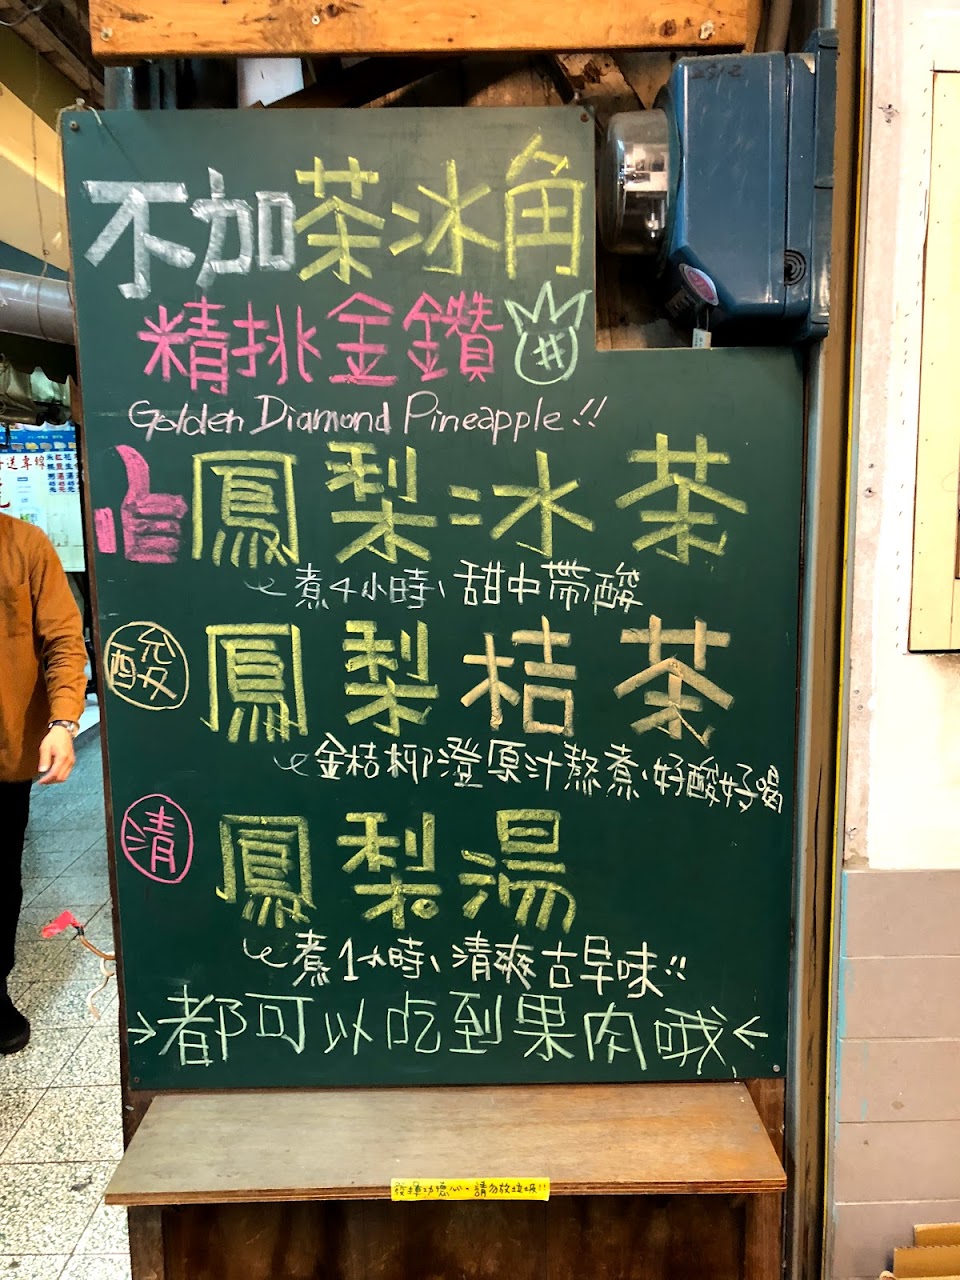 不加茶冰角
精挑金鑽
Golden Diamond Pineapple!!
鳳梨冰茶
煮4小時、甜中帶酸
酸 鳳梨桔茶
金桔柳澄原汁熬煮、好酸好喝
清 鳳梨湯
煮1小時、清爽古早味!!
→都可以吃到果肉哦←
發揮功德心，請勿放垃圾!!